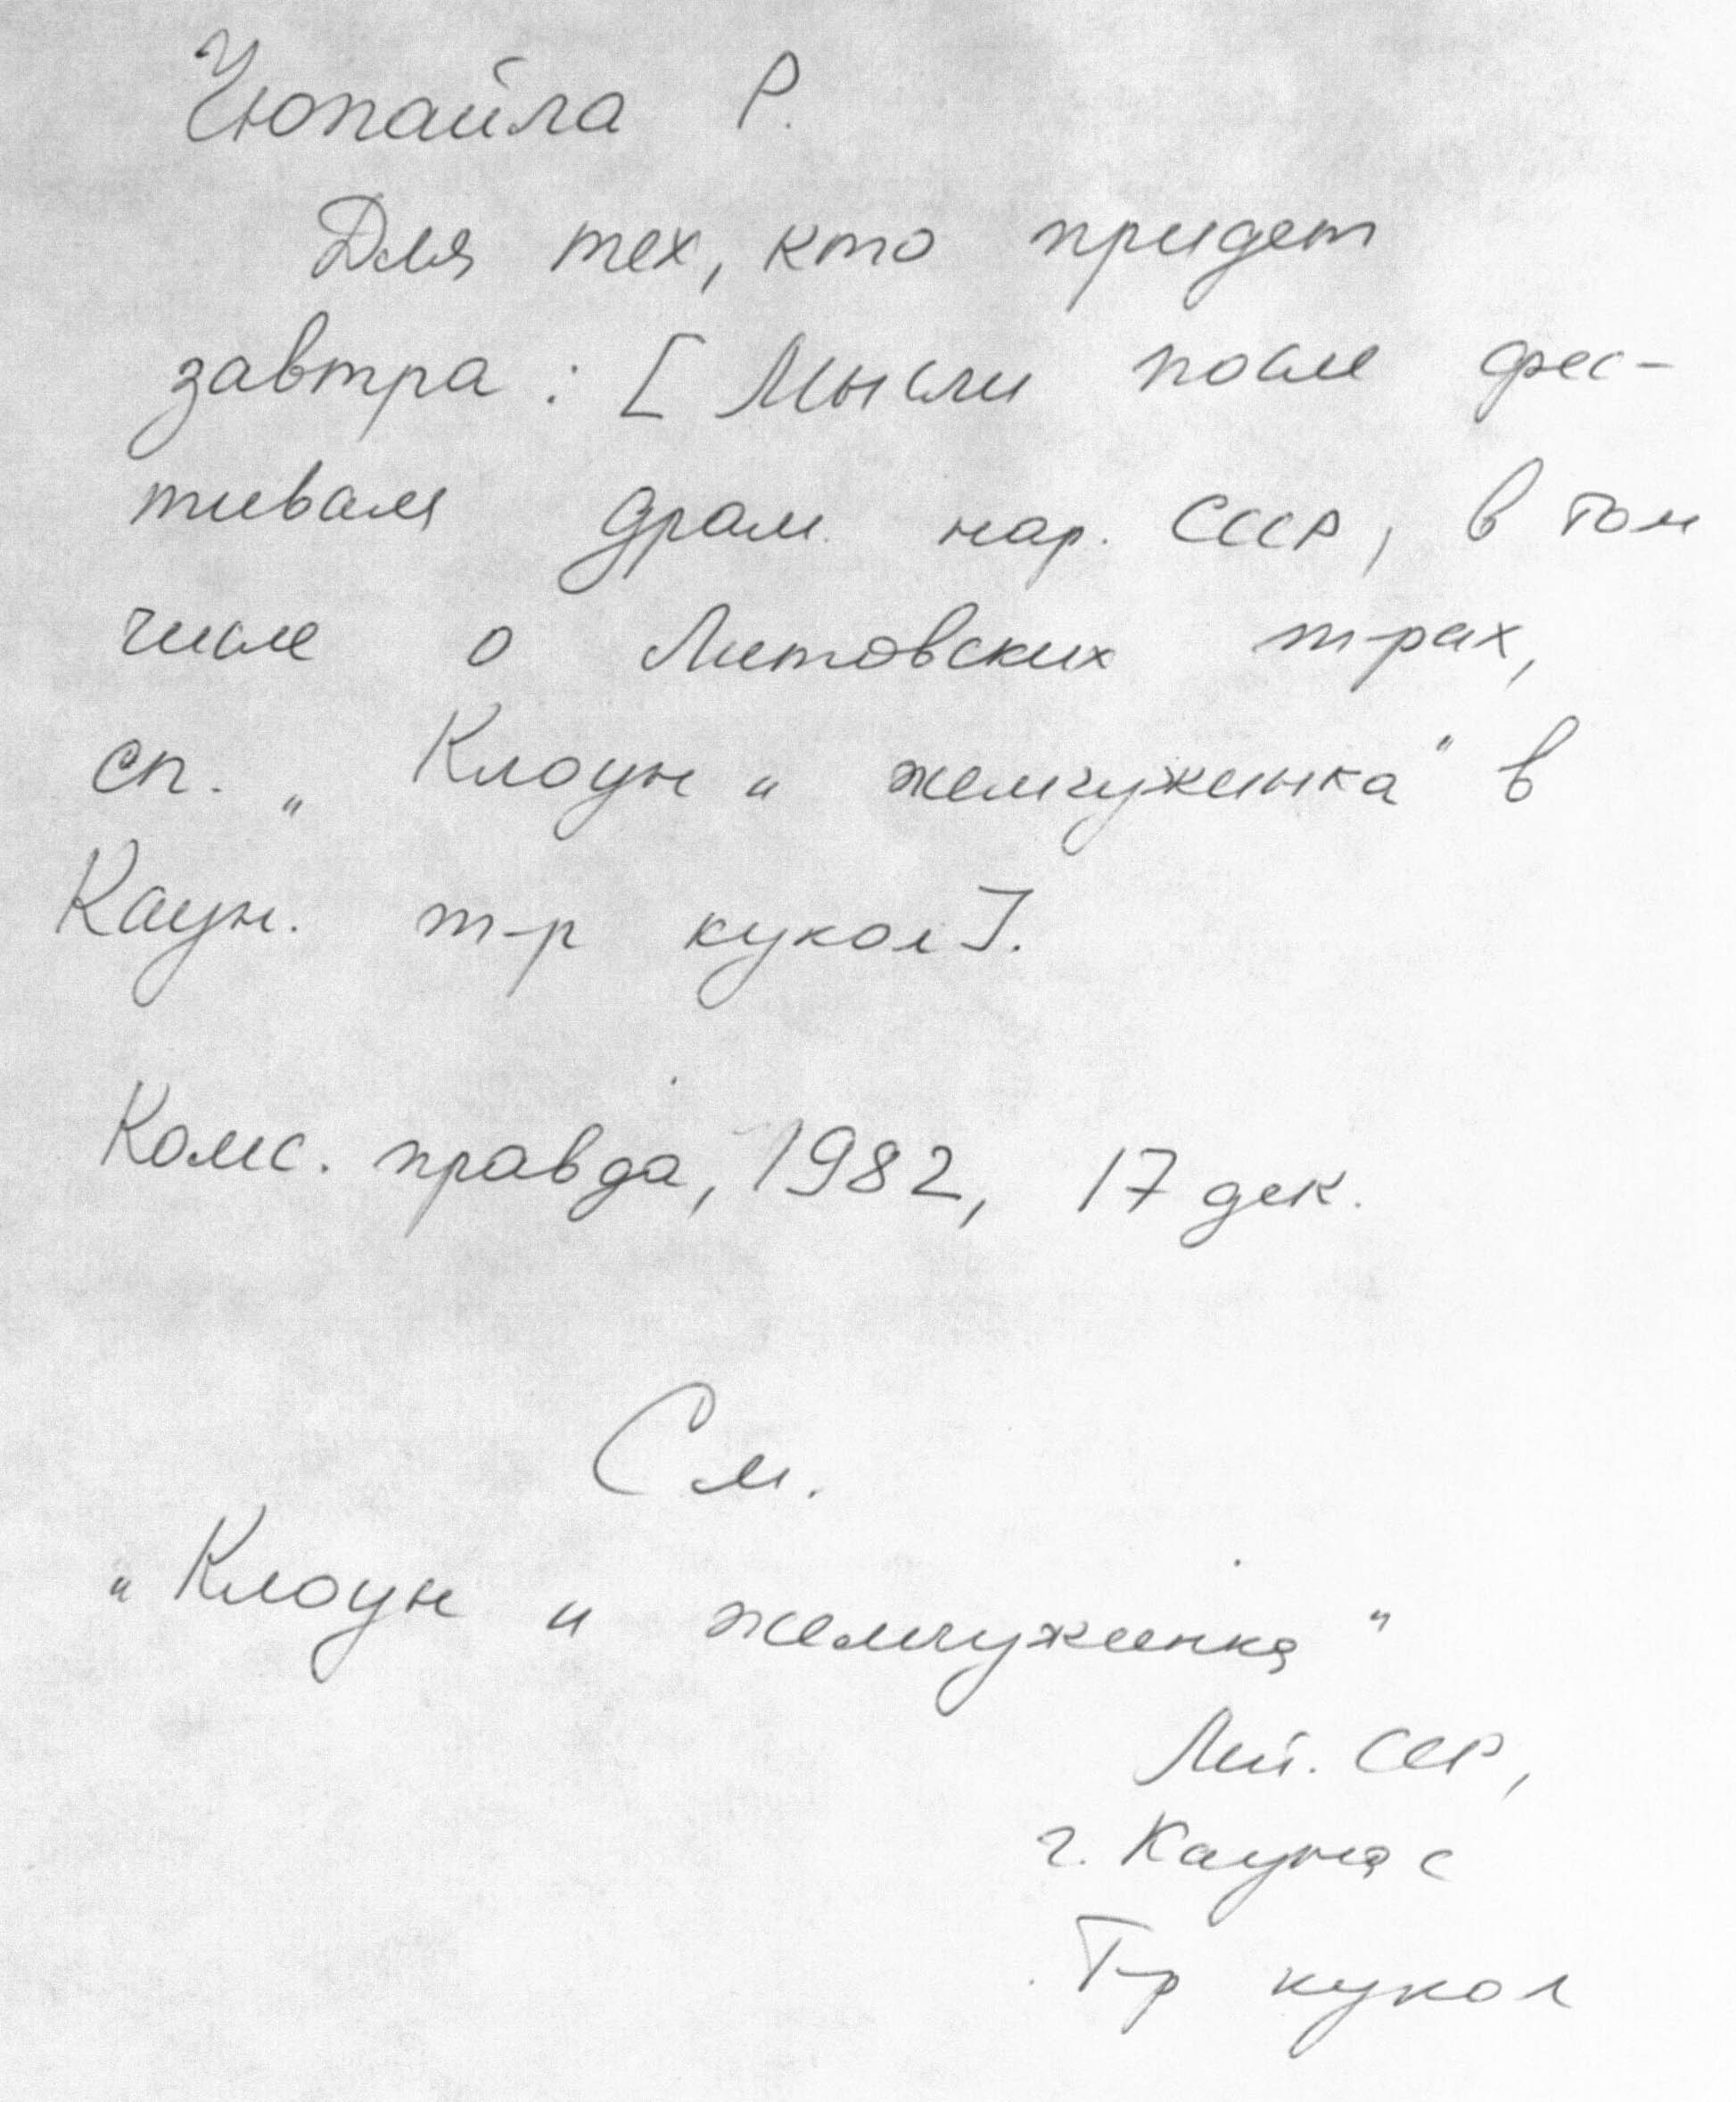 Чюпайла Р.
Для тех, кто придет
завтра: [Мысли после фес-
тиваля драм. нар. СССР, в том
числе о Литовских т-рах,
сп. „Клоун и жемчуженка" в
Каун. т-р кукол].
Комс. правда, 1982, 17 дек.
См.
„Клоун и жемчуженка"
Лит. ССР,
г. Каунас
Т-р кукол